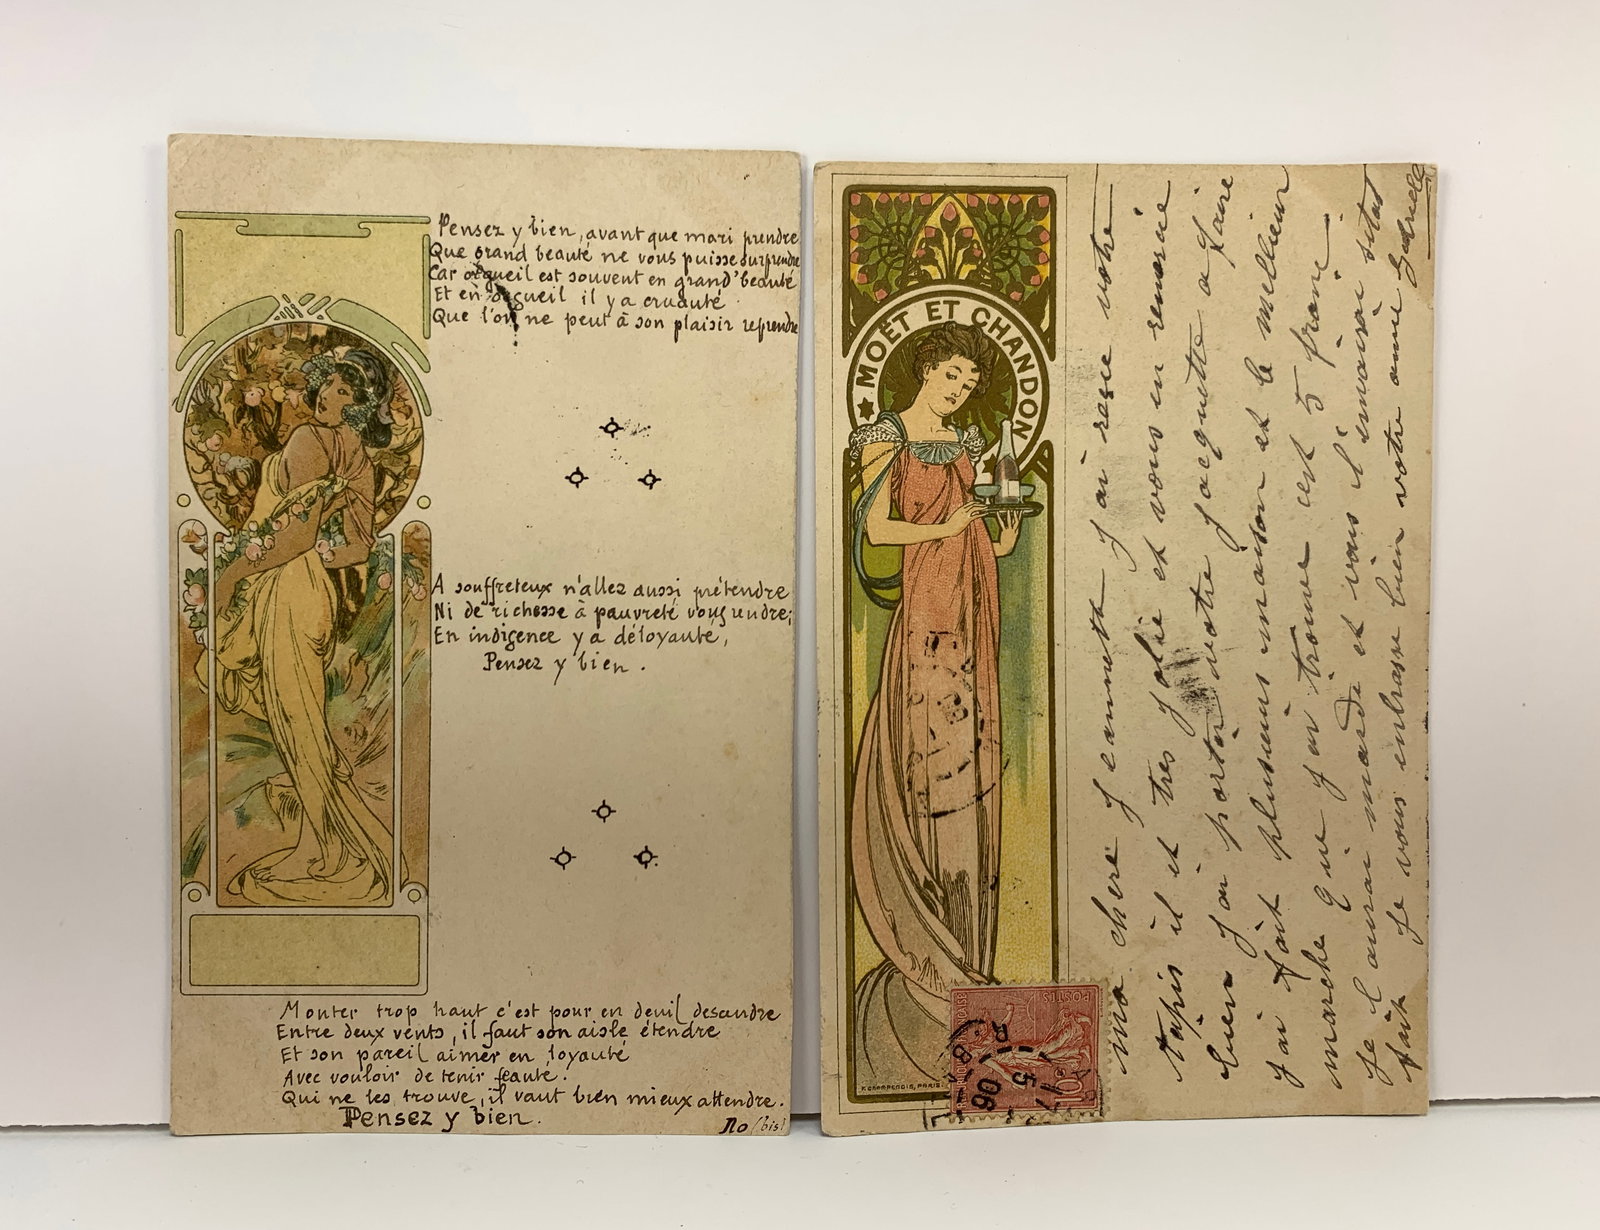 Pensez y bien, avant que mari prendre
Que grand beauté ne vous puisse surprendre
Car orgueil est souvent en grand' beauté
Et en orgueil il y a cruauté
Que l'on ne peut à son plaisir reprendre
A souffreteux n'allez aussi prétendre
Ni de richesse à pauvreté vous rendre;
En indigence y a déloyauté,
Pensez y bien.
Monter trop haut c'est pour en deuil descendre
Entre deux vents, il faut son aisle étendre
Et son pareil aimer en loyauté
Avec vouloir de tenir féauté.
Qui ne les trouve, il vaut bien mieux attendre.
Pensez y bien.
No (bis)
MOËT ET CHANDON
F. CHAMPENOIS, PARIS
POSTES
10
5
06
ma chere Jeannette j'ai resue votre
tapis il et tres jolie et vous en remercie
bien j'ai porter votre jacquette a faire
j'ai fait plusieurs maison et le meilleur
marche que j'ai trouve cest 5 franc
je l aurai made et vous l envairai sitot
fait je vous enbrasse bien votre amie Gabrielle